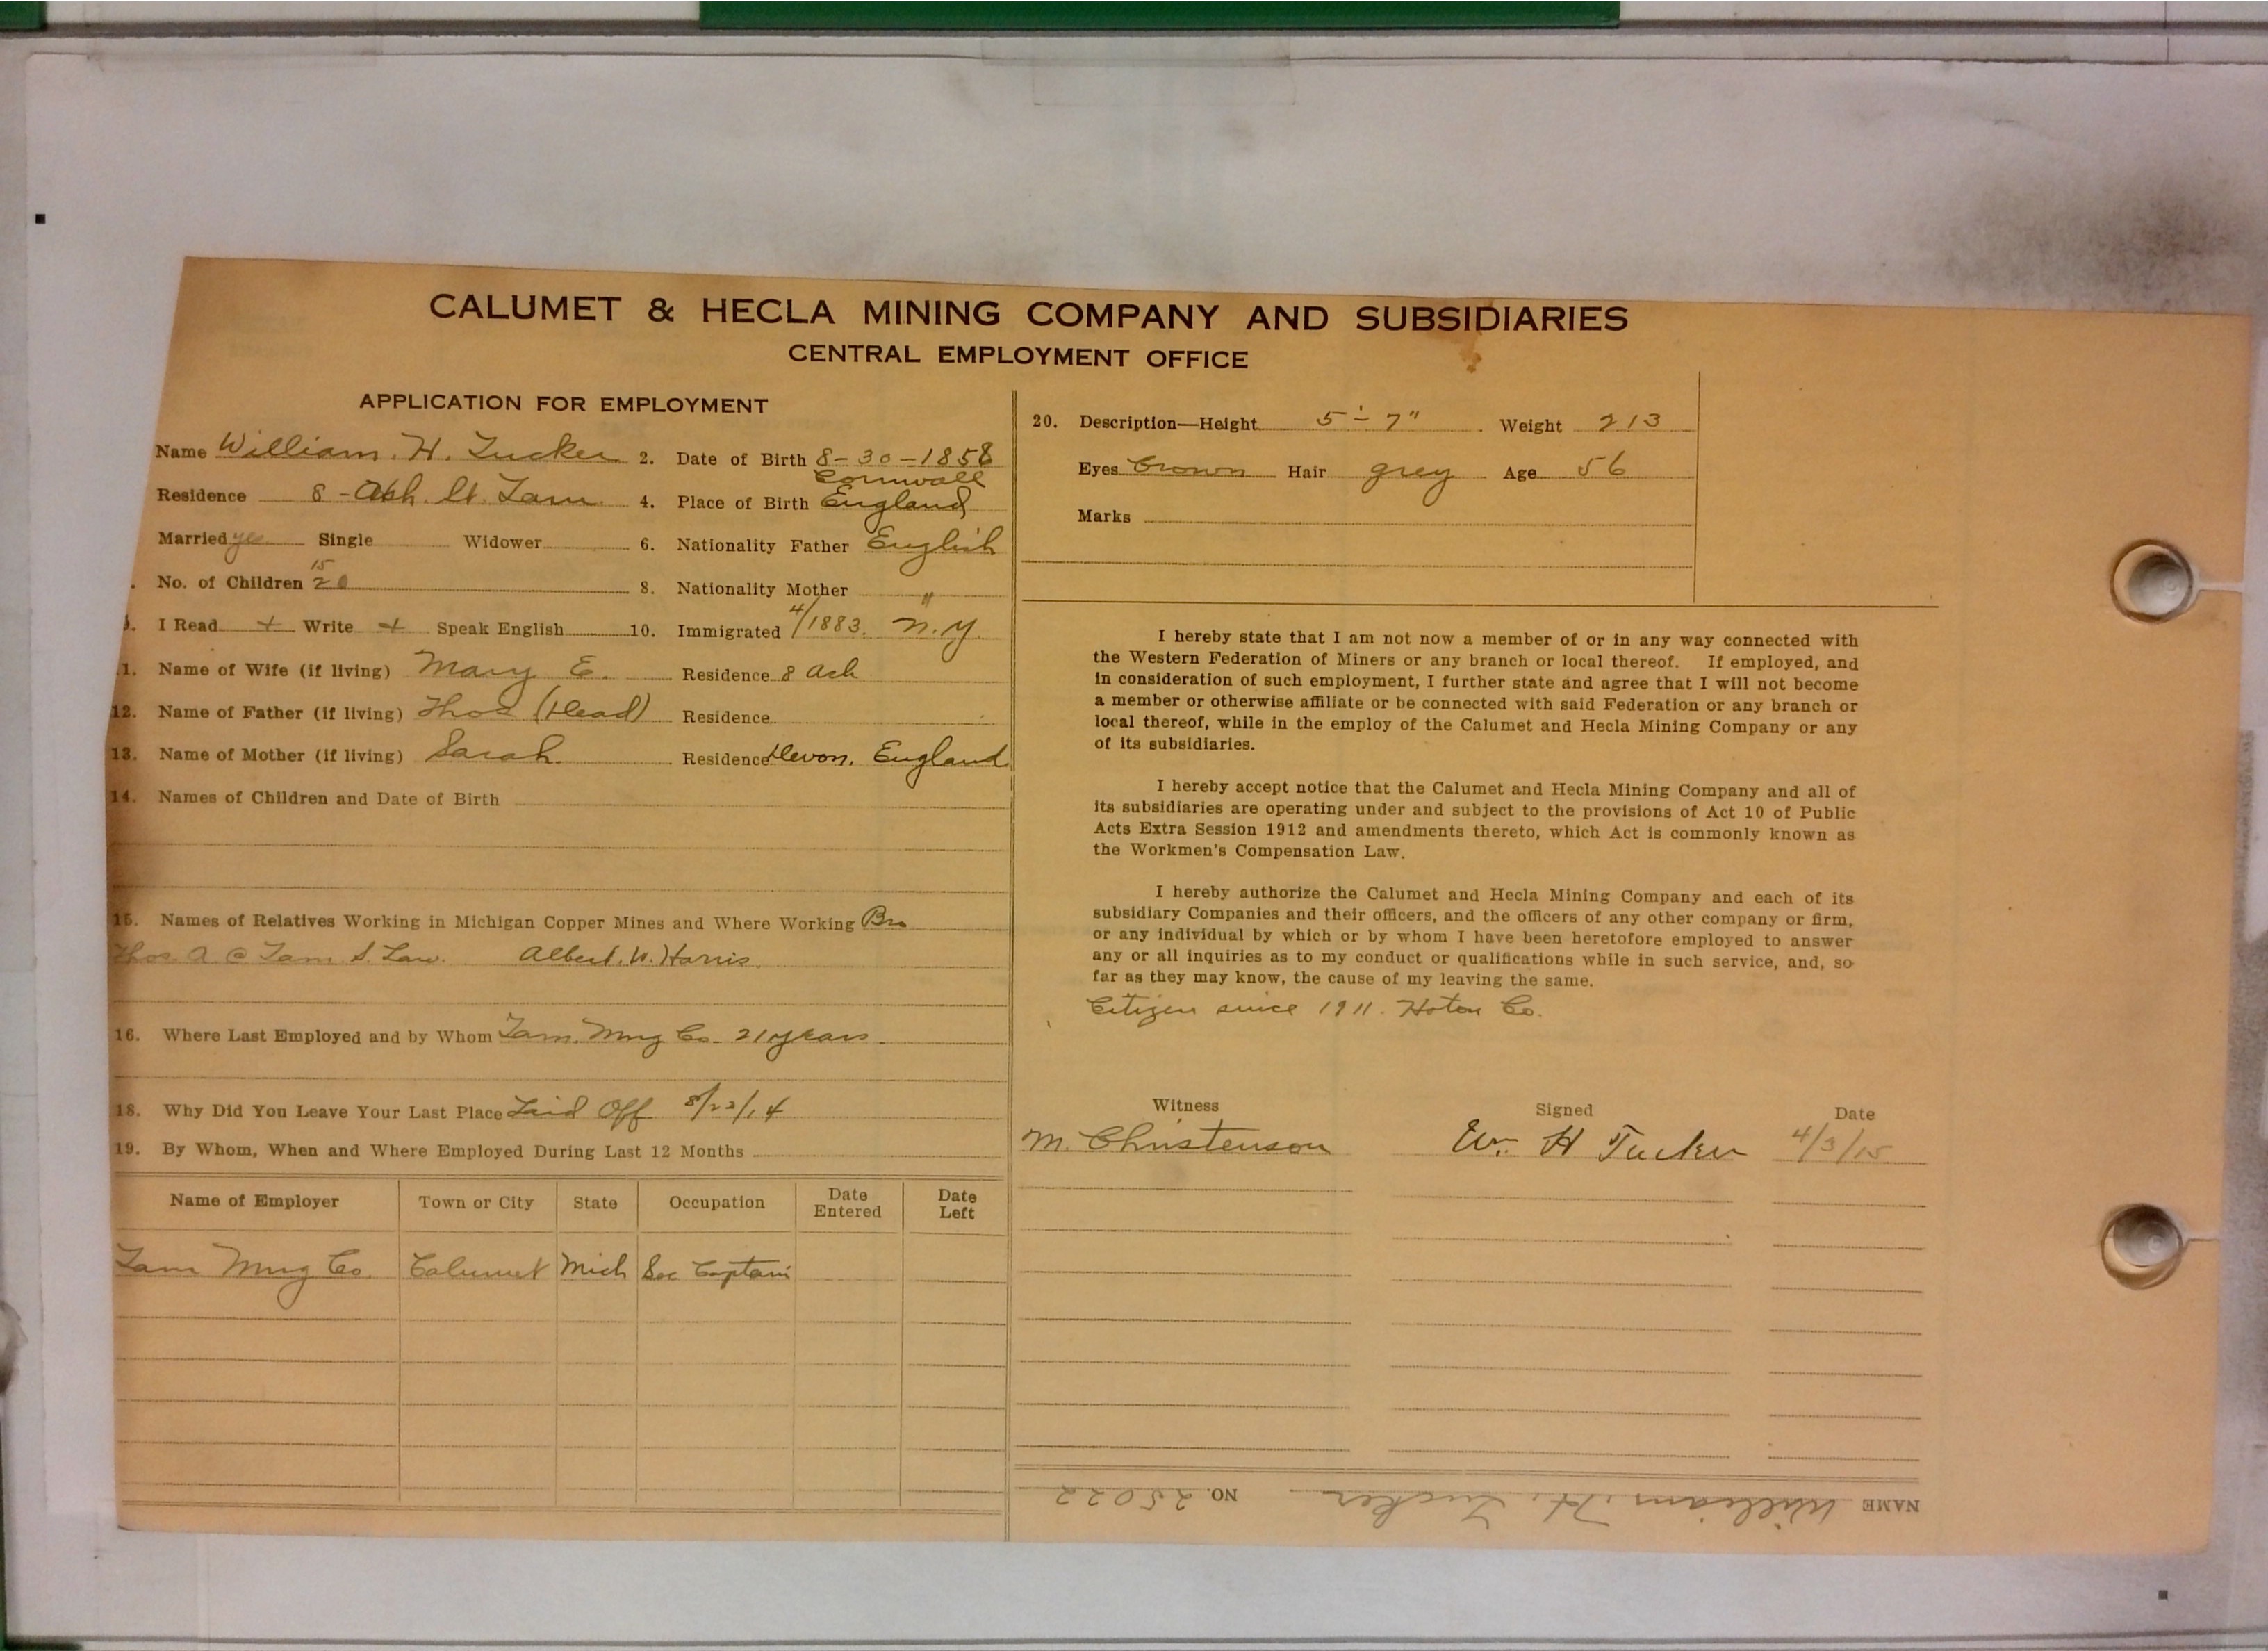 CALUMET & HECLA MINING COMPANY AND SUBSIDIARIES
CENTRAL EMPLOYMENT OFFICE
APPLICATION FOR EMPLOYMENT
Name William. H. Tucker 2. Date of Birth 8-30-1858
Cornwall
Residence 8-Ash. St. Tam 4. Place of Birth England
Married yes Single Widower 6. Nationality Father English
15
No. of Children 20 8. Nationality Mother "
I Read + Write + Speak English 10. Immigrated 4/1883. N.Y.
11. Name of Wife (if living) Mary E. Residence 8 Ash
12. Name of Father (if living) Thos (Dead) Residence
13. Name of Mother (if living) Sarah. Residence Devon, England
14. Names of Children and Date of Birth
15. Names of Relatives Working in Michigan Copper Mines and Where Working Bro
Thos. A. @ Tam S. Law. Albert. W. Harris.
16. Where Last Employed and by Whom Tam. Mng Co. 21 years.
18. Why Did You Leave Your Last Place Laid Off 8/22/14
19. By Whom, When and Where Employed During Last 12 Months
Name of Employer Town or City State Occupation Date Entered Date Left
Tam Mng Co. Calumet Mich Captain
20. Description—Height 5'-7" Weight 213
Eyes brown Hair grey Age 56
Marks
I hereby state that I am not now a member of or in any way connected with
the Western Federation of Miners or any branch or local thereof. If employed, and
in consideration of such employment, I further state and agree that I will not become
a member or otherwise affiliate or be connected with said Federation or any branch or
local thereof, while in the employ of the Calumet and Hecla Mining Company or any
of its subsidiaries.
I hereby accept notice that the Calumet and Hecla Mining Company and all of
its subsidiaries are operating under and subject to the provisions of Act 10 of Public
Acts Extra Session 1912 and amendments thereto, which Act is commonly known as
the Workmen's Compensation Law.
I hereby authorize the Calumet and Hecla Mining Company and each of its
subsidiary Companies and their officers, and the officers of any other company or firm,
or any individual by which or by whom I have been heretofore employed to answer
any or all inquiries as to my conduct or qualifications while in such service, and, so
far as they may know, the cause of my leaving the same.
Citizen since 1911. Hoton Co.
Witness Signed Date
M. Christenson Wm. H Tucker 4/3/15
NAME William. H. Tucker NO. 25022